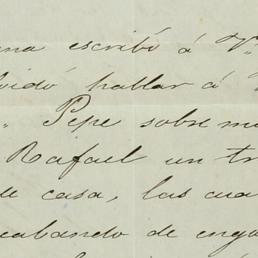 una escribó á V.
vidó hablar á
" Pepe sobre m
Rafael un tr
de casa, las cua
cabando de enga